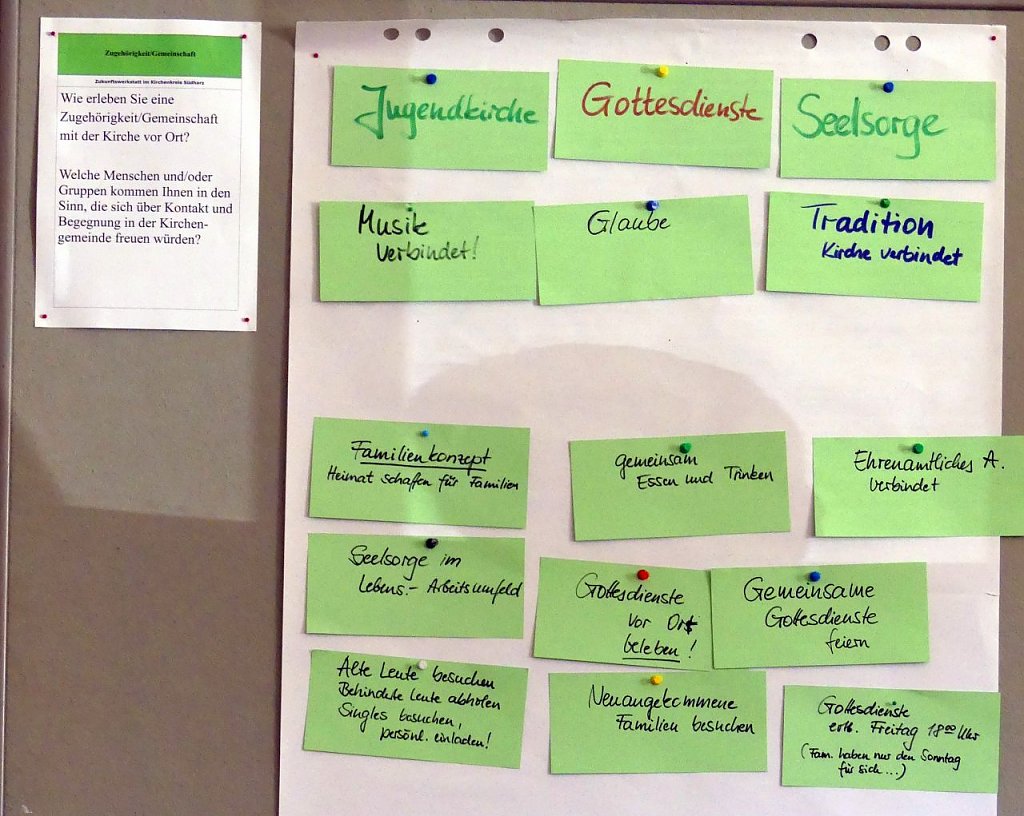 Zugehörigkeit/Gemeinschaft
Zukunftswerkstatt im Kirchenkreis Südharz
Wie erleben Sie eine
Zugehörigkeit/Gemeinschaft
mit der Kirche vor Ort?
Welche Menschen und/oder
Gruppen kommen Ihnen in den
Sinn, die sich über Kontakt und
Begegnung in der Kirchen-
gemeinde freuen würden?
Jugendkirche
Gottesdienste
Seelsorge
Musik
verbindet!
Glaube
Tradition
Kirche verbindet
Familienkonzept
Heimat schaffen für Familien
gemeinsam
Essen und Trinken
Ehrenamtliches A.
verbindet
Seelsorge im
Lebens.- Arbeitsumfeld
Gottesdienste
vor Ort
beleben!
Gemeinsame
Gottesdienste
feiern
Alte Leute besuchen
Behinderte Leute abholen
Singles besuchen,
persönl. einladen!
Neuangekommene
Familien besuchen
Gottesdienste
Freitag 18ºº Uhr
(Fam. haben nur den Sonntag
für sich...)